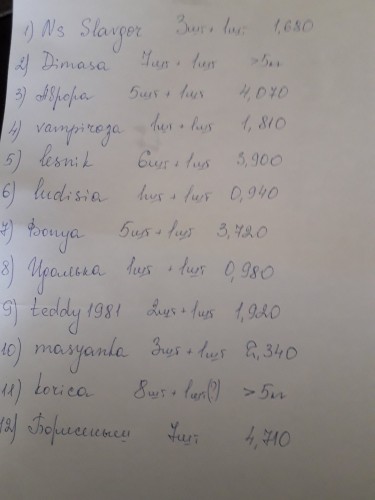 1) N3 Slavgor 3шт + 1шт 1,680
2) Dimasa 7шт + 1шт >5кг
3) Аврора 5шт + 1шт 4,070
4) vampiroza 1шт + 1шт 1,810
5) lesnik 6шт + 1шт 3,900
6) ludisia 1шт + 1шт 0,940
7) Бонуа 5шт + 1шт 3,720
8) Уралька 1шт + 1шт 0,980
9) teddy 1981 2шт + 1шт 1,920
10) masyanka 3шт + 1шт 2,340
11) korica 8шт + 1шт(?) >5кг
12) 7шт 4,710